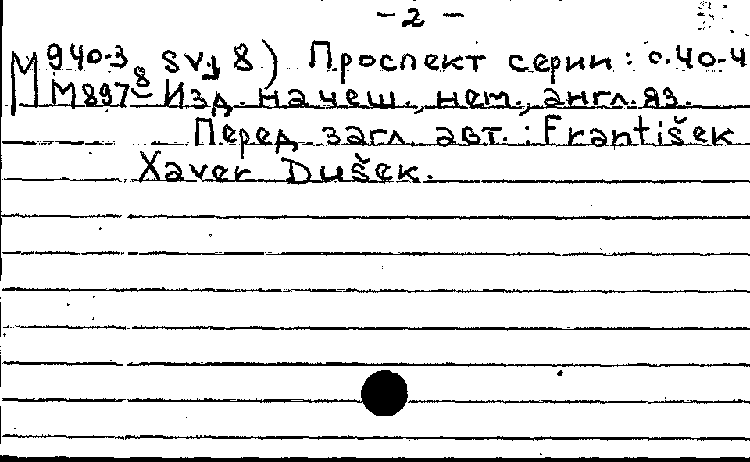 - 2 -
М 940-3 8 sv. 8) Проспект серии: с.40-4
М897- Изд. на чеш., нем., англ. яз.
Перед загл. авт.: František
Xaver Dušek.